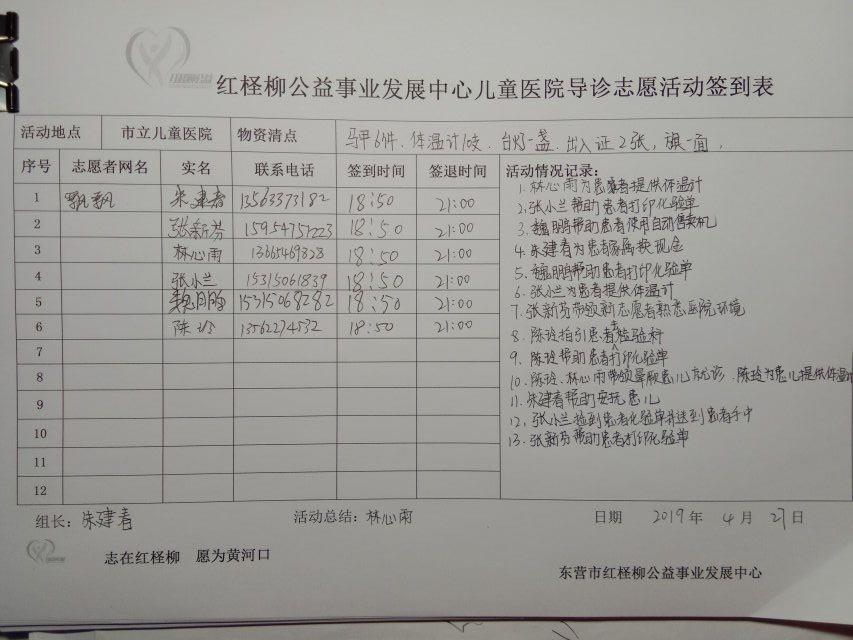 红柽柳公益事业发展中心儿童医院导诊志愿活动签到表
活动地点 市立儿童医院 物资清点 马甲6件、体温计1支、台灯一盏、出入证2张,旗一面,
序号 志愿者网名 实名 联系电话 签到时间 签退时间 活动情况记录:
1 飘飘 朱建春 13563373182 18:50 21:00
2 张新芬 15954757223 18:50 21:00
3 林心雨 13665469328 18:50 21:00
4 张小兰 15315061839 18:50 21:00
5 魏朋朋 15315068282 18:50 21:00
6 陈玲 13562274532 18:50 21:00
7
8
9
10
11
12
1.林心雨为患者提供体温计
2.张小兰帮助患者打印化验单
3.魏朋帮助患者使用自动售卖机
4.朱建春为患者家属换现金
5.魏朋帮助患者打印化验单
6.张小兰为患者提供体温计
7.张新芬带领新志愿者熟悉医院环境
8.陈玲指引患者去检验科
9.陈玲帮助患者打印化验单
10.陈玲、林心雨带领晕厥患儿就诊.陈玲为患儿提供体温计
11.朱建春帮助安抚患儿
12.张小兰捡到患者化验单并送到患者手中
13.张新芬帮助患者打印化验单
组长:朱建春 活动总结:林心雨 日期 2019年 4月 27日
志在红柽柳 愿为黄河口
东营市红柽柳公益事业发展中心